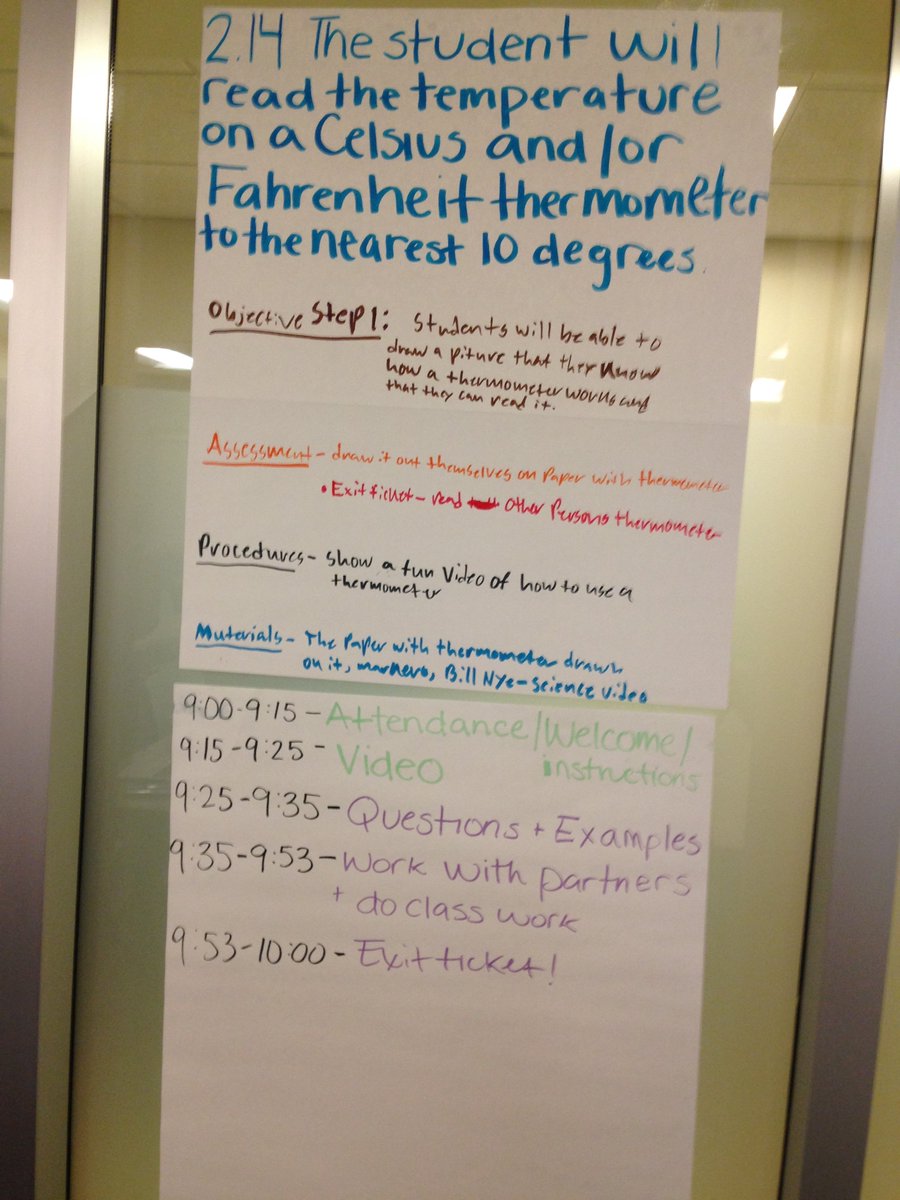 2.14 The student will
read the temperature
on a Celsius and/or
Fahrenheit thermometer
to the nearest 10 degrees.
Objective Step 1: Students will be able to
draw a piture that they know
how a thermometer works and
that they can read it.
Assessment - draw it out themselves on Paper with thermometer
• Exit ticket - read other Persons thermometer
Procedures - show a fun Video of how to use a
thermometer
Muterials - The Paper with thermometer drawn
on it, markers, Bill Nye - science video
9:00-9:15 - Attendance/Welcome/
instructions
9:15-9:25 - Video
9:25-9:35 - Questions + Examples
9:35-9:53 - Work with partners
+ do class work
9:53-10:00 - Exit ticket!